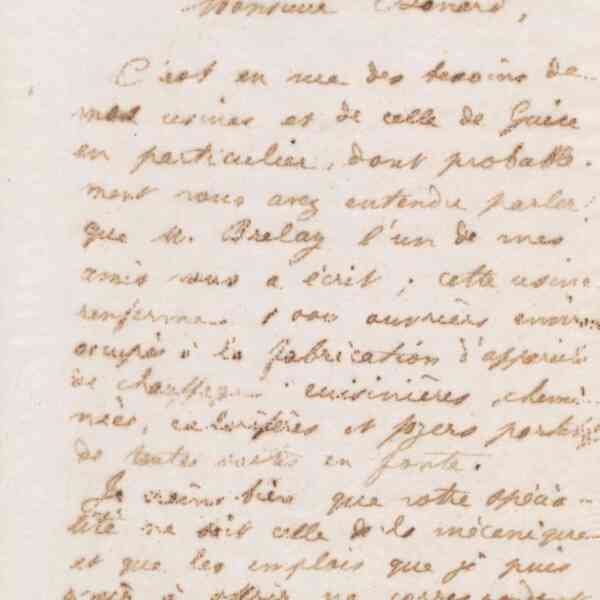 Monsieur
C'est en vue des besoins de
mes usines et de celle de Guise
en particulier, dont probable-
ment vous avez entendu parler,
que M. Brelay l'un de mes
amis vous a écrit ; cette usine
renferme 1000 ouvriers environ
occupés à la fabrication d'appareils
de chauffage : cuisinières, chemi-
nées, calorifères et foyers portatifs
de toutes sortes en fonte.
Je crains bien que votre spécia-
lité ne soit celle de la mécanique
et que les emplois que je puis
à offrir ne correspondent